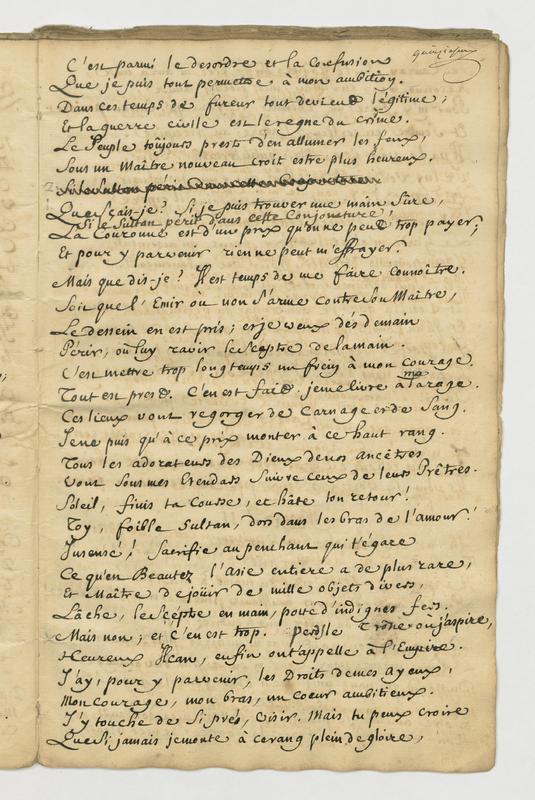 C'est parmi le desordre et la Confusion
Que je puis tout permettre à mon ambition.
Dans ces temps de fureur tout devient légitime;
Et la guerre civille est le regne du crime.
Le Peuple toûjours prest d'en allumer les feux,
Sous un Maître nouveau croit estre plus heureux.
Si le Sultan périt dans cette Conjoncture
Que sçais-je? Si je puis trouver une main sûre,
Si le Sultan périt dans cette Conjoncture!
La Couronne est d'un prix qu'on ne peut trop payer;
Et pour y parvenir rien ne peut m'effrayer.
Mais que dis-je? Il est temps de me faire connoître.
Soit que l'Emir où non s'arme contre son Maître,
Le dessein en est pris; et je veux dés demain
Périr, où luy ravir le Sceptre de la main.
C'est mettre trop longtemps un frein à mon courage.
Tout est prest. C'en est fait je me livre à ma rage.
Ces lieux vont regorger de Carnage et de Sang.
Je ne puis qu'à ce prix monter à ce haut rang.
Tous les adorateurs des Dieux de nos ancêtres
Vont sous mes Etendars Suivre ceux de leurs Prêtres.
Soleil, finis ta Course, et hâte ton retour!
Toy, foible Sultan, dors dans les bras de l'amour!
Insensé! Sacrifie au penchant qui t'égare
Ce qu'en Beautez l'Asie entiere a de plus rare,
Et Maître de joüir de mille objets divers,
Lâche, le Sceptre en main, porte d'indignes fers.
Mais non; et c'en est trop. perds le Trône où j'aspire,
Heureux enfin ont appellé à l'Empire.
J'ay, pour y parvenir, les Droits de mes ayeux,
Mon courage, mon bras, un coeur ambitieux.
J'y touche de si prés, Visir. Mais tu peux croire
Que si jamais je monte à ce rang plein de gloire,